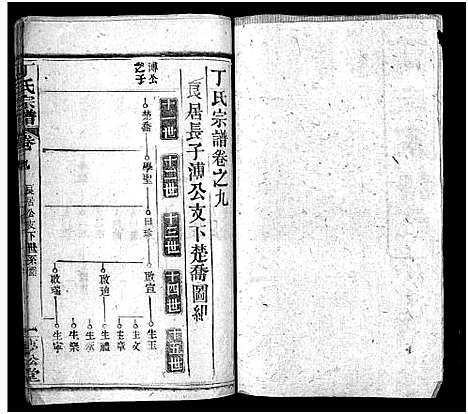 丁氏宗譜卷之九
良居長子溥公支下楚喬圖紀
十一世
十二世
十三世
十四世
十五世
溥公之子
楚喬
學聖
日珍
啟宣
生玉
生文
生章
啟迪
生禮
生承
啟瑞
生樂
生寧
丁氏宗譜
卷九
良居公支下世系圖
一
公堂